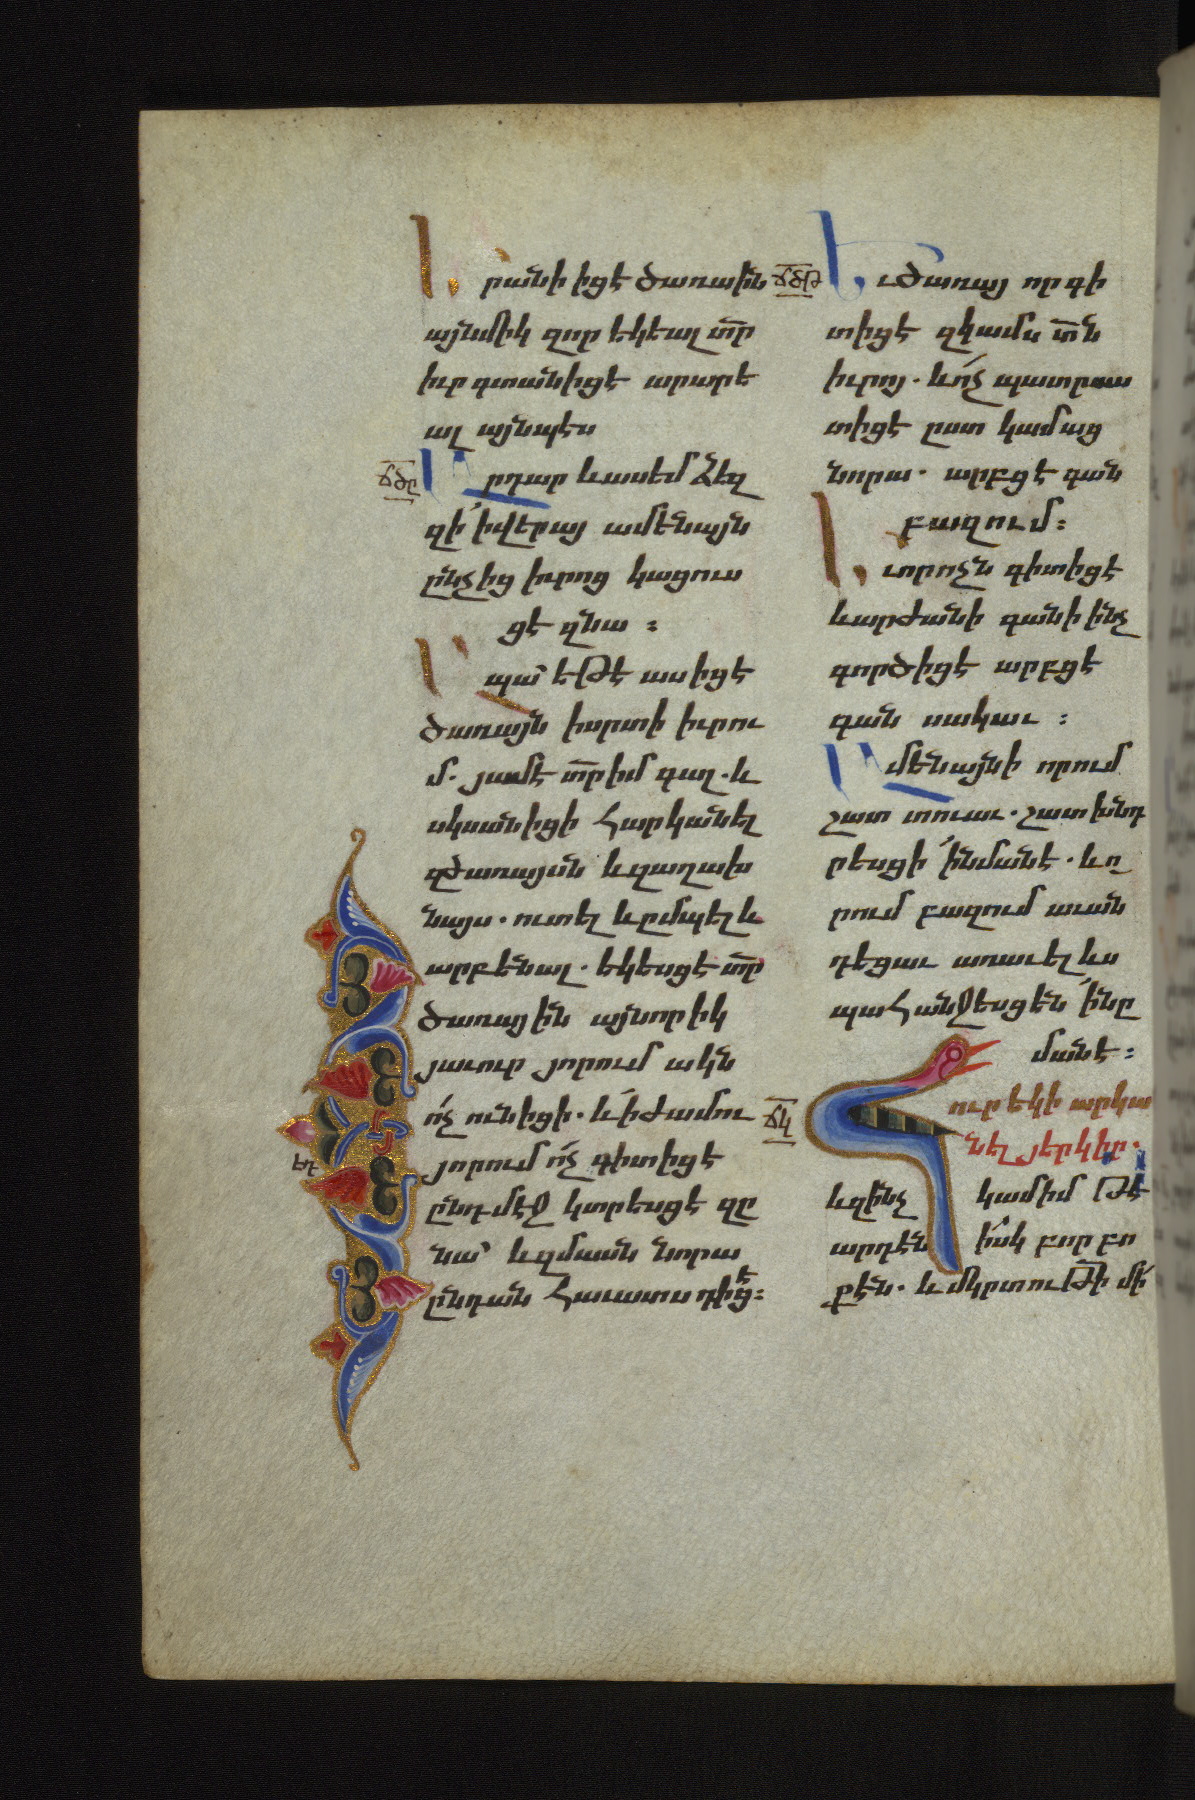 Երանի իցէ ծառաին
այնմիկ զոր եկեալ տր̅
իւր գտանիցէ արարե
ալ այնպէս
ճծը
Արդար և ասեմ ձեզ
զի ՛ի վերայ ամենայն
ընչից իւրոց կացուս
ցէ զնա ։
Ապա՝ եթէ ասիցէ
ծառայն ի սրտի իւրու
մ. յամէ տր̅ իմ գալ. և
սկսանիցի հարկանել
զծառայսն և զաղախ
նայս. ուտել և ըմպել և
արբենալ. եկեսցէ տր̅
ծառայ ին այնորիկ
յաւուր յորում ակն
ո՛չ ունիցի. և ՛ի ժամու
յորում ո՛չ գիտիցէ
ընդ մէջ կտրեսցէ զը
նա՝ և զմասն նորա
ընդ անհաւատս դիցէ։
ճծթ
Եւ ծառայ որ գի
տիցէ զկամս տն̅
իւրոյ. և ո՛չ պատրաս
տիցէ ըստ կամաց
նորա. արբցէ գան
բազում։
Եւ որ ոչն գիտիցէ
և արժանի գանի ինչ
գործիցէ արբցէ
գան սակաւ ։
Ամենայնի որում
շատ տուաւ. շատ խնդ
րեսցի ՛ի նմանէ. և ո
րում բազում աւան
դեցաւ առաւել ևս
պահանջեսցեն ՛ինը
մանէ։
ճկ
Հուր եկի արկա
նել յերկիր.
և զի՞նչ կամիմ թէ
արդէն իսկ բորբո
քէն. և մկրտութի̅ մի